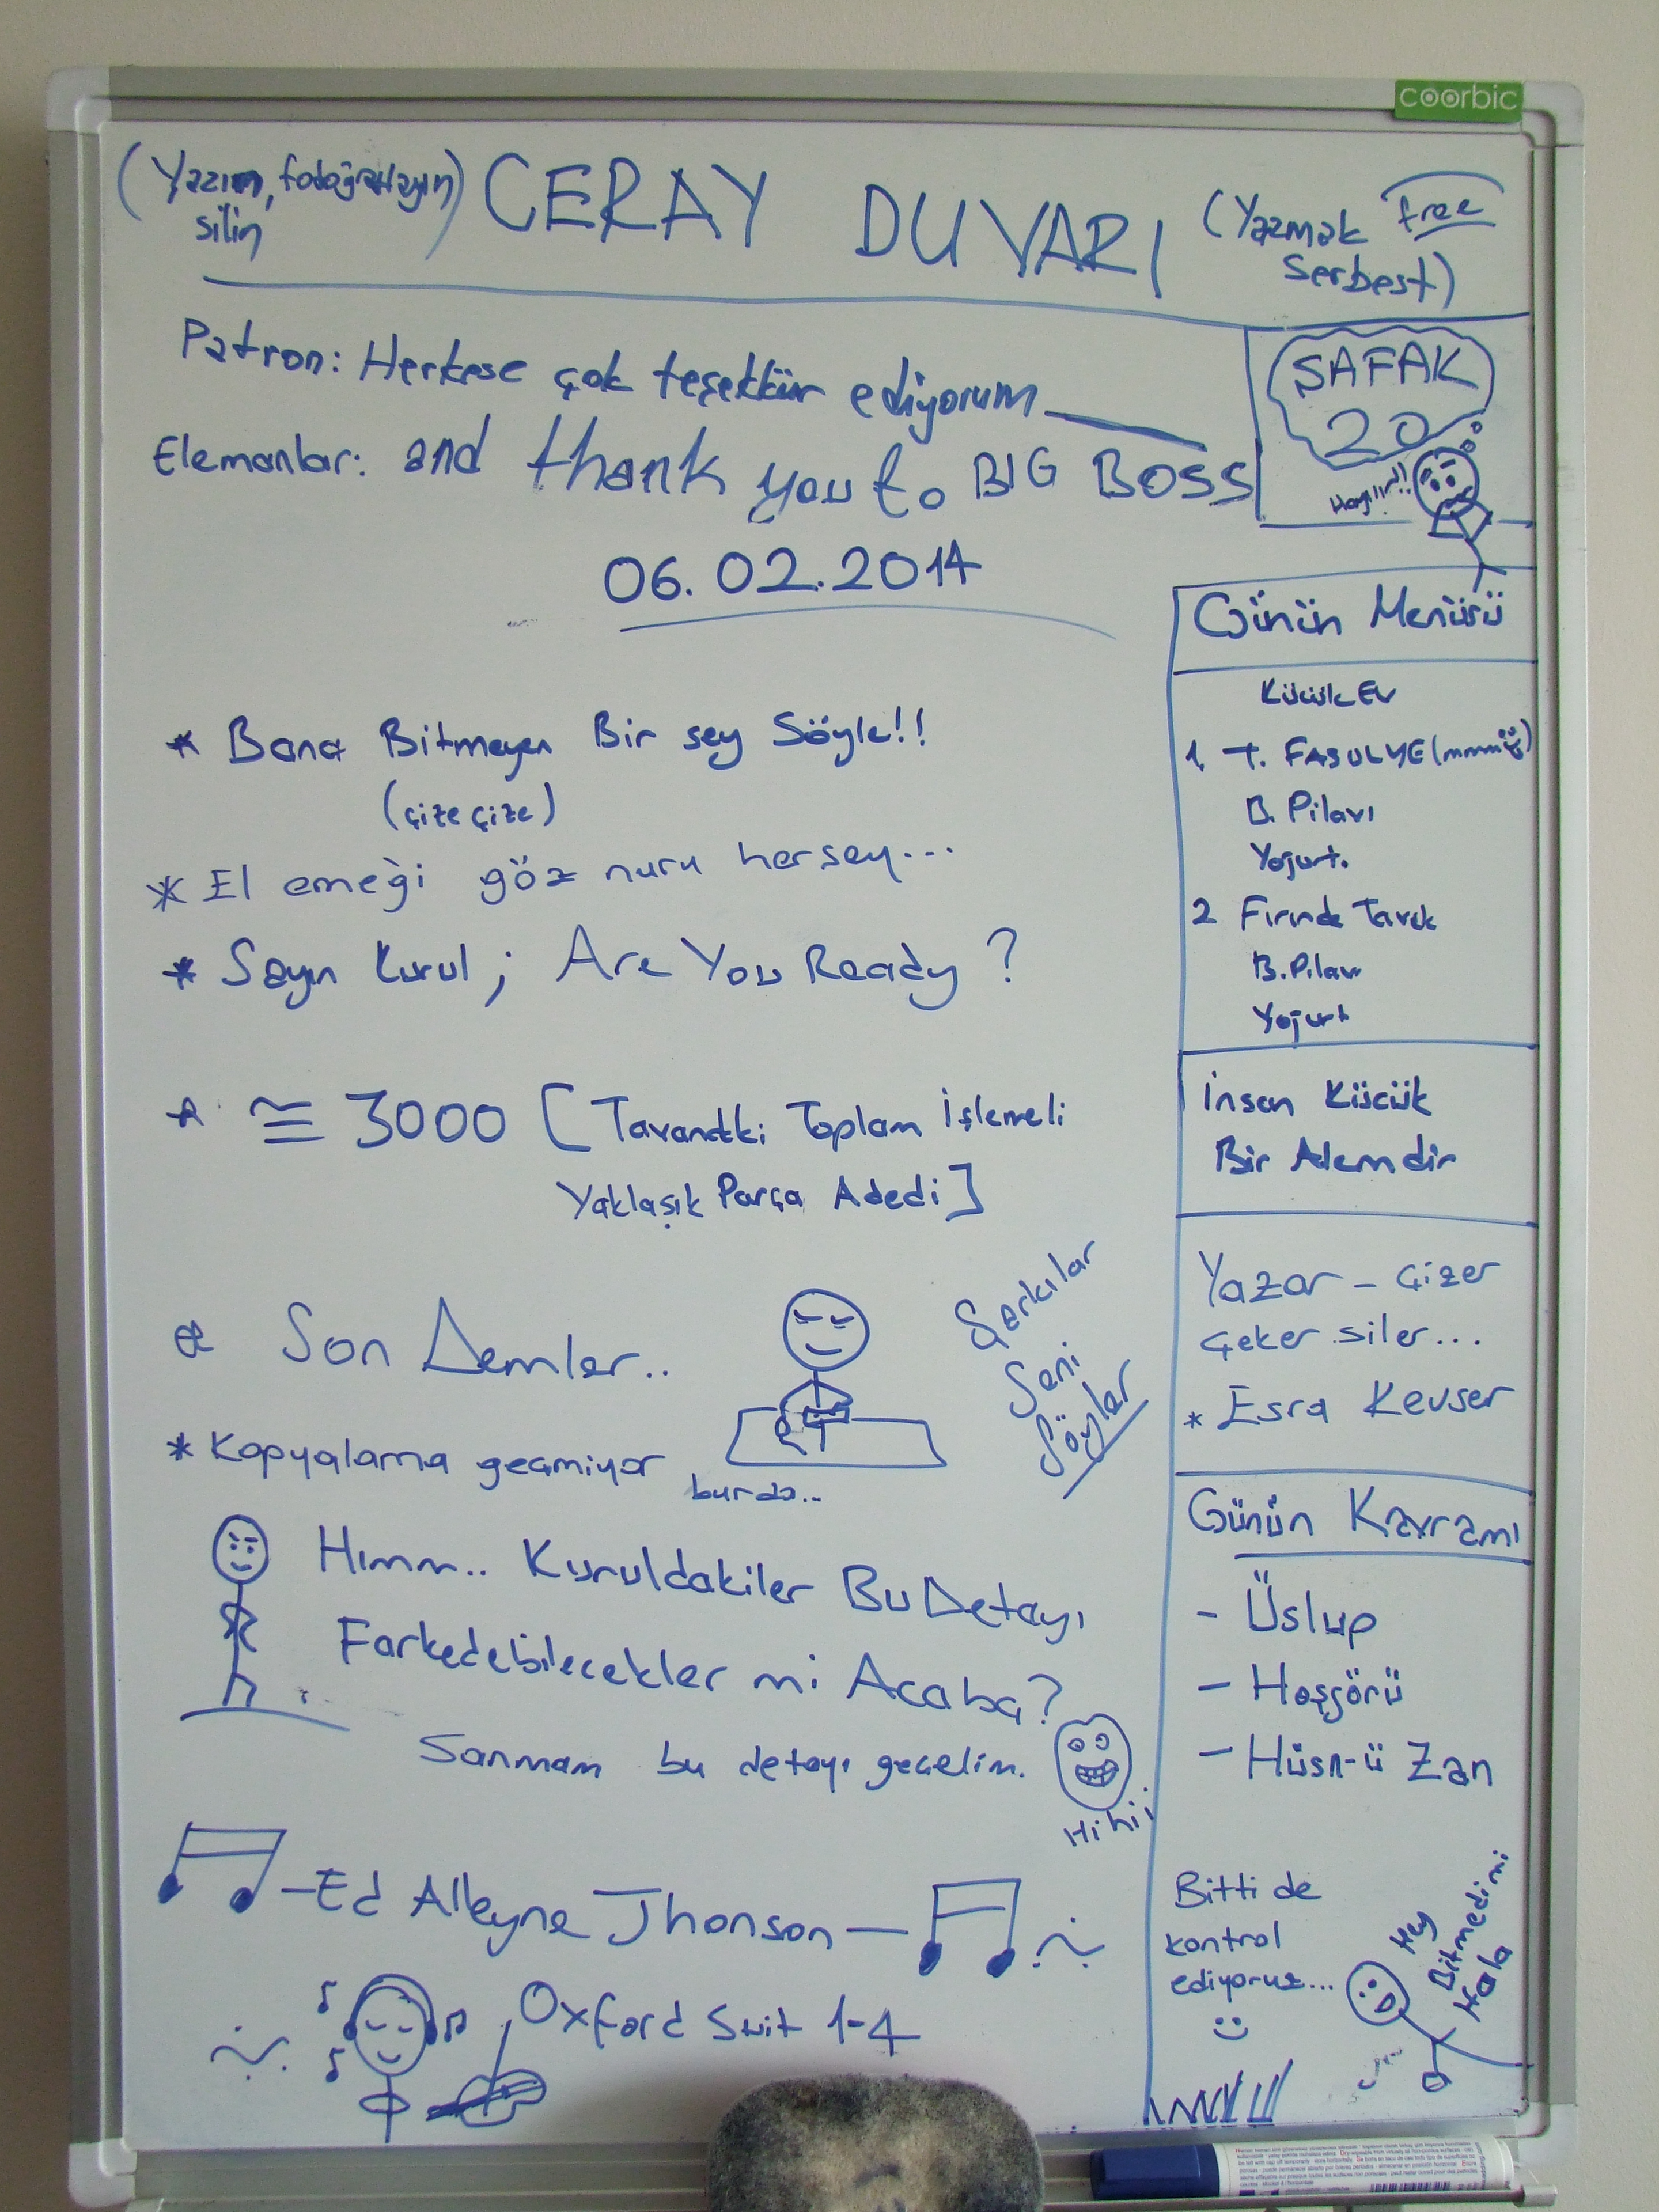 coorbic
(Yazın, fotoğraflayın)
silin
CERAY DUVARI
(Yazmak free
serbest)
Patron: Herkese çok teşekkür ediyorum
Elemanlar: and thank you to BIG BOSS
06.02.2014
* Bana Bitmeyen Bir şey Söyle!!
(çize çize)
* El emeği göz nuru hersey...
* Sayın kurul; Are You Ready?
* ≅ 3000 [Tavandaki Toplam İşlemeli
Yaklaşık Parça Adedi]
Son Demler..
Şarkılar
Seni
Söyler
* Kopyalama geçmiyor
burda..
Hımm.. Kuruldakiler Bu Detayı
Farkedebilecekler mi Acaba?
Sanmam bu detayı geçelim.
Hihii
-Ed Alleyne Jhonson-
Oxford Suit 1-4
ŞAFAK
20
Hayıır!!
Günün Menüsü
Küçük Ev
1. T. FASULYE (mmm)
B. Pilavı
Yoğurt.
2 Fırında Tavuk
B. Pilavı
Yoğurt
İnsan Küçük
Bir Alemdir
Yazar - Çizer
Çeker siler...
* Esra Kevser
Günün Kavramı
- Üslup
- Hoşgörü
- Hüsn-ü Zan
Bitti de
kontrol
ediyoruz...
Hey
Bitmedimi
Hala